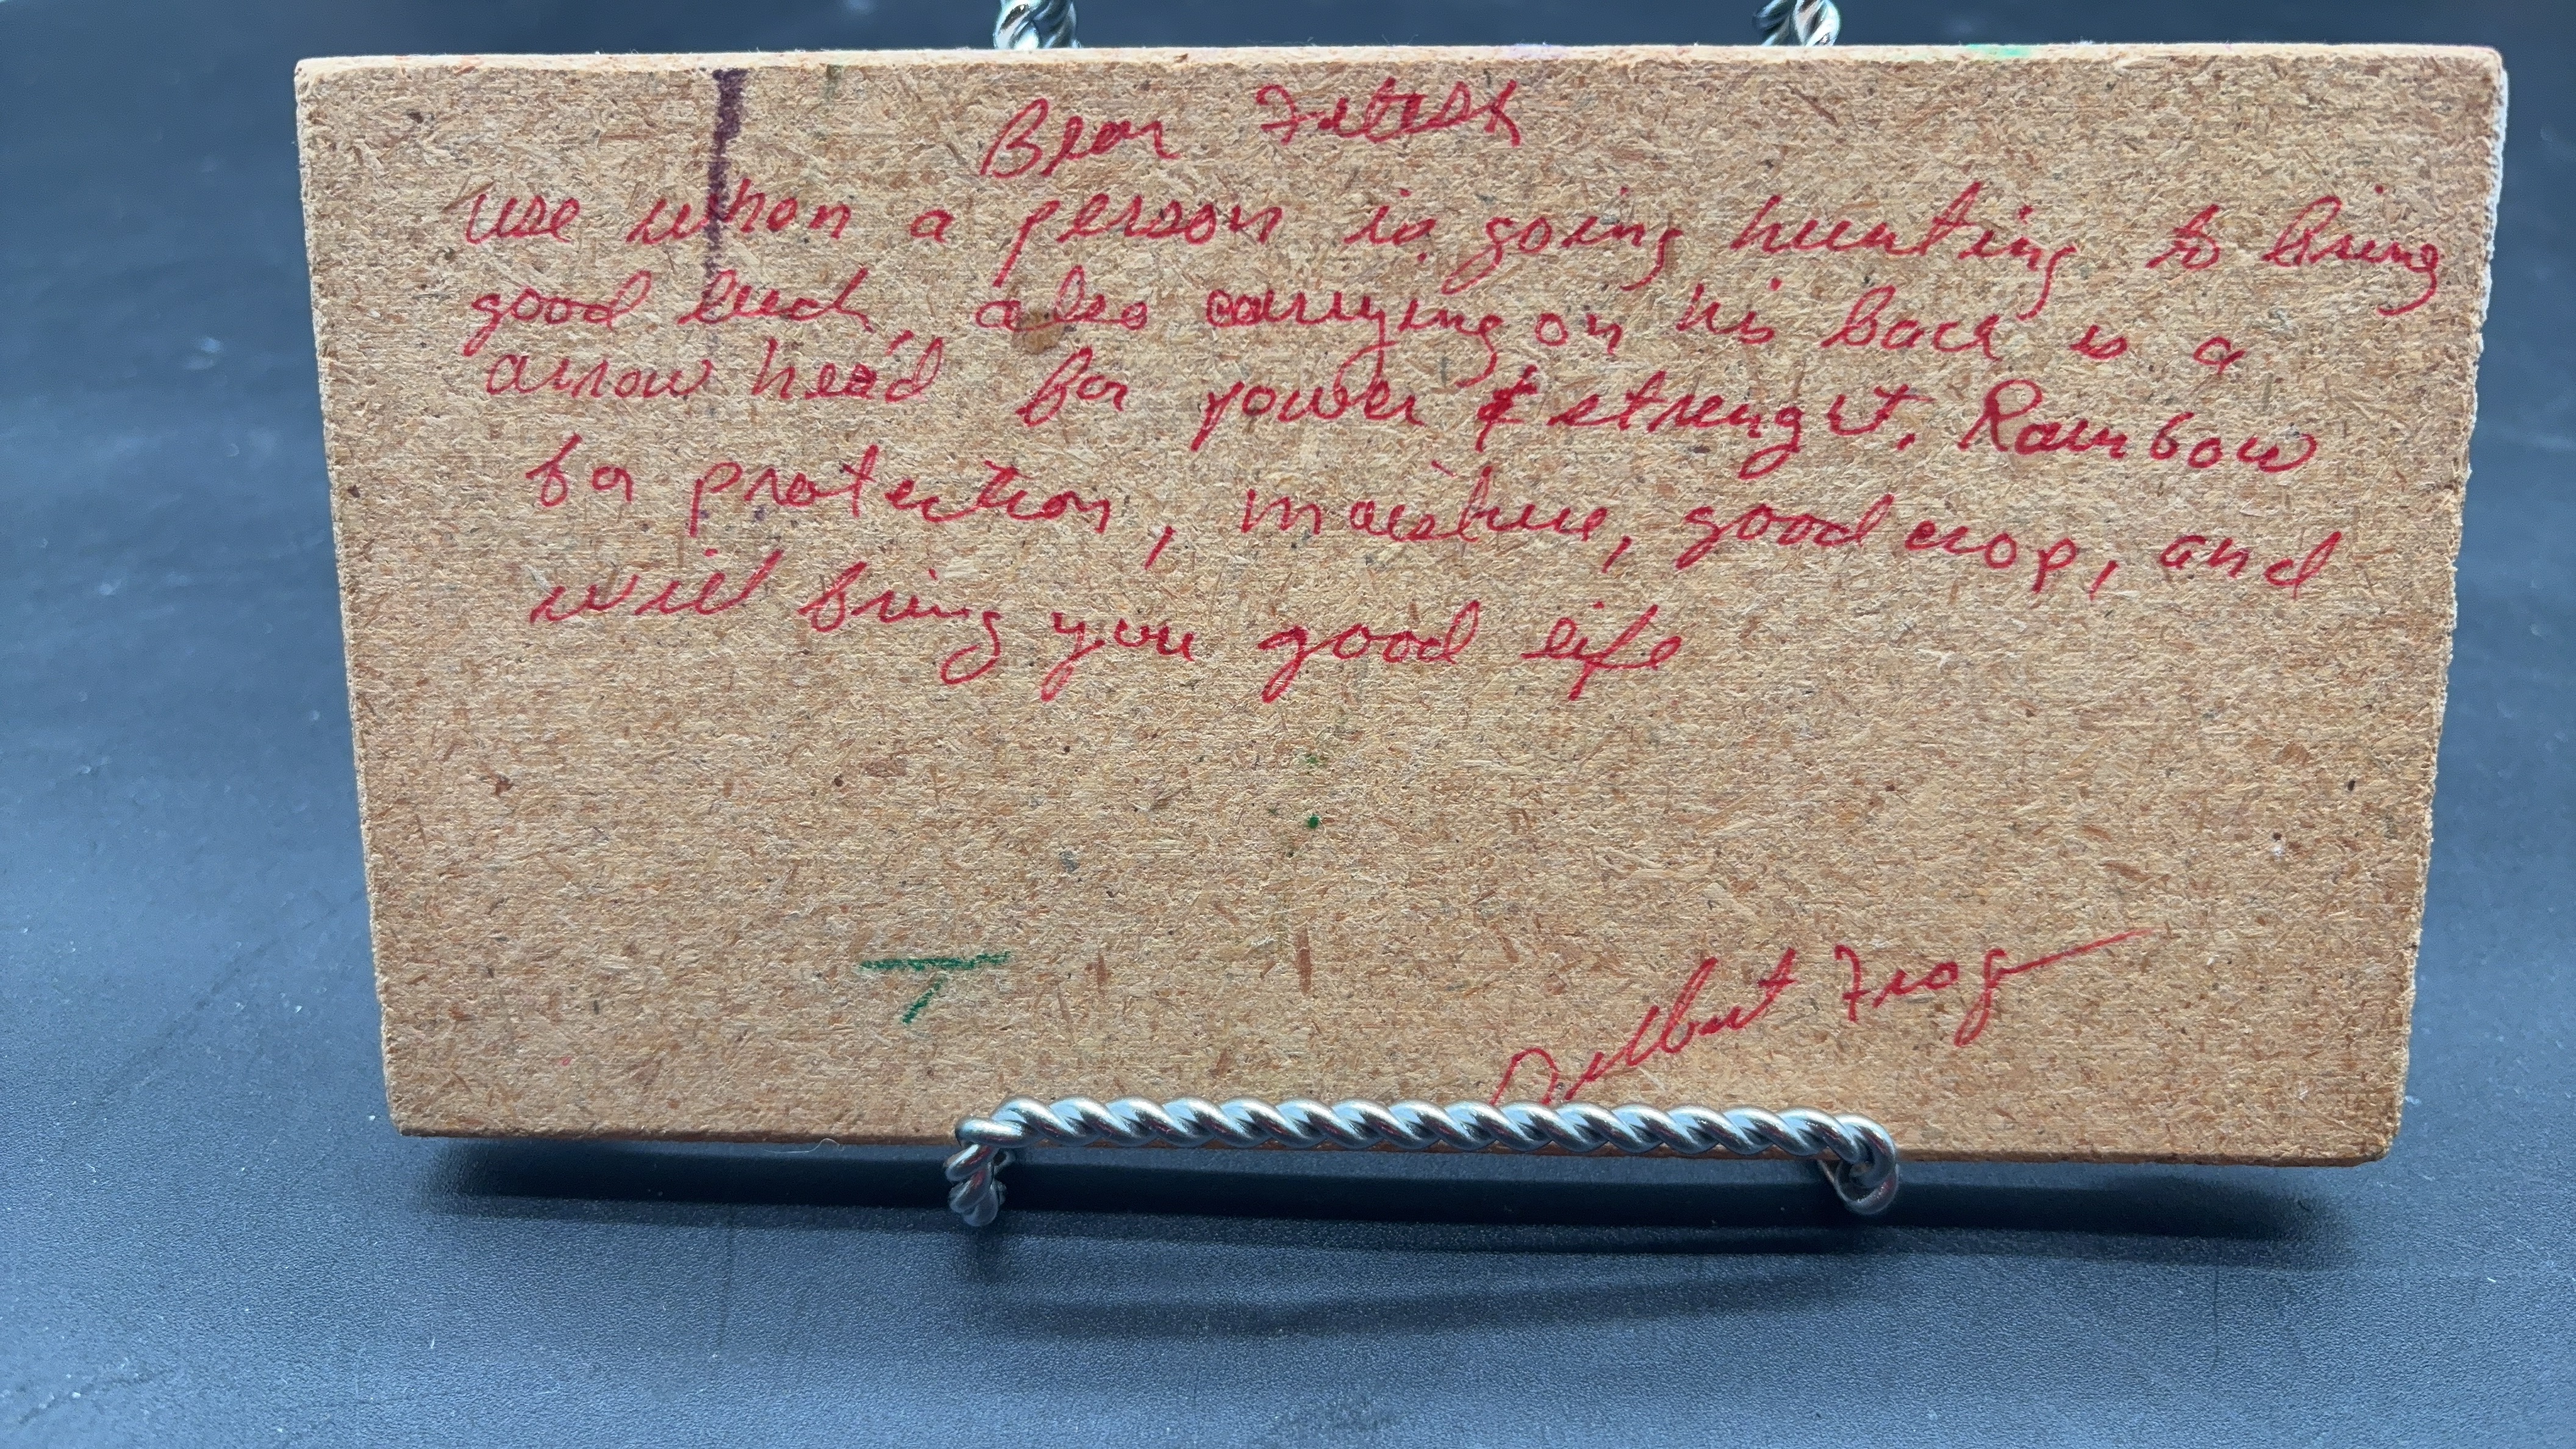 Bear Fetish
use when a person is going hunting to bring
good luck, also carrying on his back is a
arrow head for power & strenght. Rainbow
for protection, moisture, good crop, and
will bring you good life
Delbert Frog